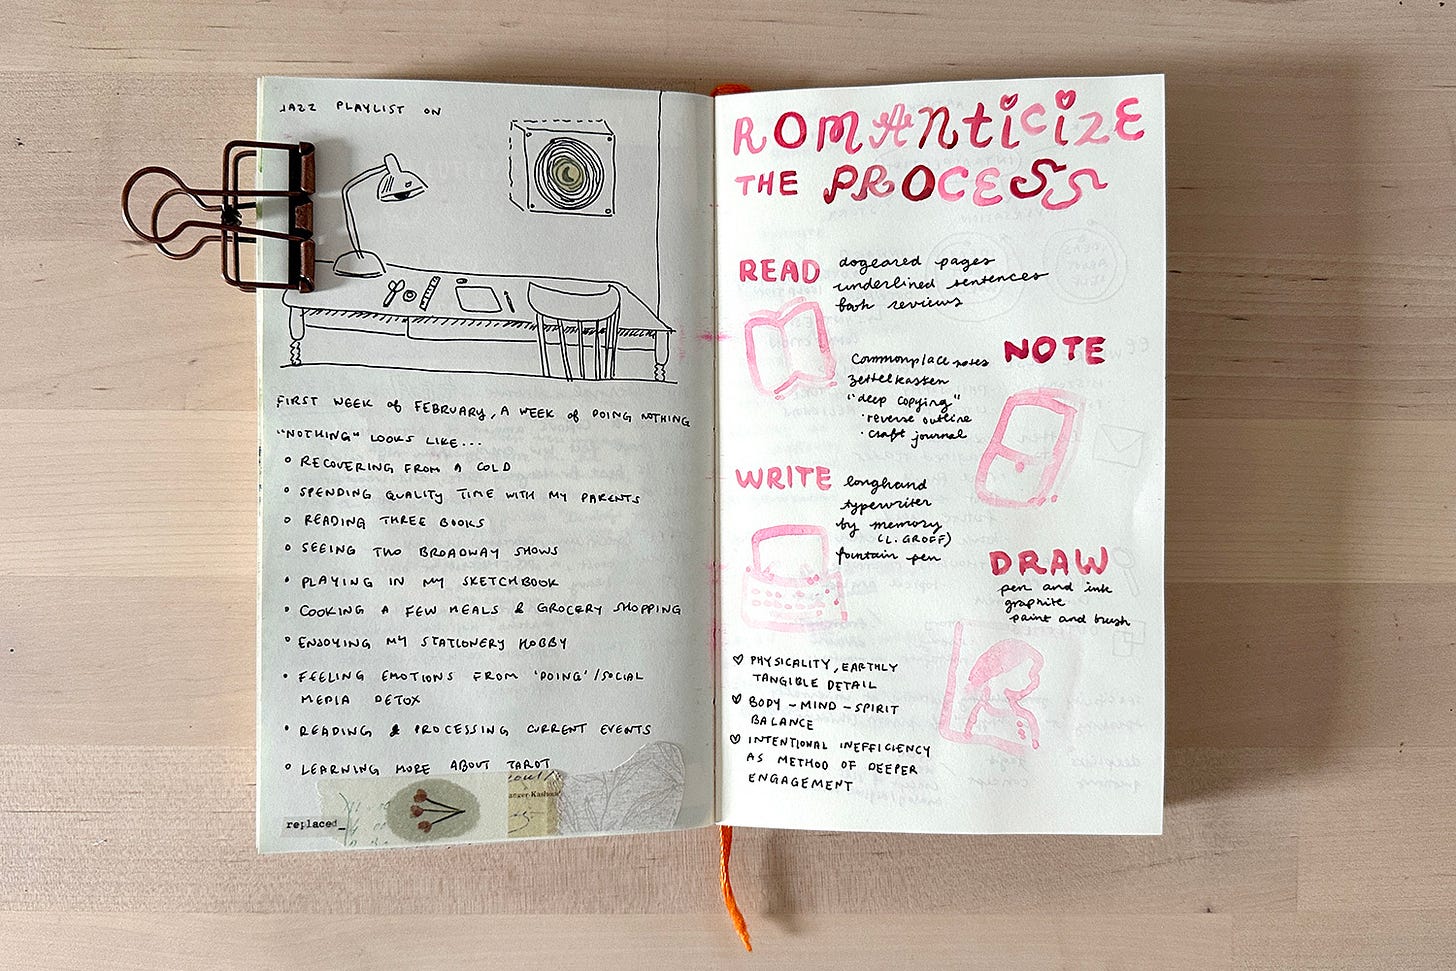 JAZZ PLAYLIST ON
FIRST WEEK of FEBRUARY, A WEEK of DOING NOTHING
"NOTHING" LOOKS LIKE...
• RECOVERING FROM A COLD
• SPENDING QUALITY TIME WITH MY PARENTS
• READING THREE BOOKS
• SEEING TWO BROADWAY SHOWS
• PLAYING IN MY SKETCHBOOK
• COOKING A FEW MEALS & GROCERY SHOPPING
• ENJOYING MY STATIONERY HOBBY
• FEELING EMOTIONS FROM 'DOING'/SOCIAL
MEDIA DETOX
• READING & PROCESSING CURRENT EVENTS
• LEARNING MORE ABOUT TAROT
replaced_
ROMANTICIZE
THE PROCESS
READ
dogeared pages
underlined sentences
book reviews
NOTE
Commonplace notes
zettelkasten
"deep copying"
· reverse outline
· craft journal
WRITE
longhand
typewriter
by memory
(L. GROFF)
fountain pen
DRAW
pen and ink
graphite
paint and brush
♡ PHYSICALITY, EARTHLY
TANGIBLE DETAIL
♡ BODY - MIND - SPIRIT
BALANCE
♡ INTENTIONAL INEFFICIENCY
AS METHOD OF DEEPER
ENGAGEMENT